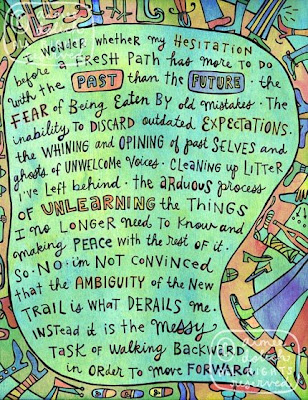 I WONDER whether my HESITATION
before a FRESH PATH has more to DO
with the PAST than the FUTURE · the
FEAR of Being Eaten BY old mistakes · The
inability to DISCARD outdated EXPECTATIONS.
the WHINING and OPINING of past SELVES and
ghosts of UNWELCOME Voices. CLeaNing up LITTER
I've Left behind · the aRDuous process
OF UNLEARNING the THINGS
I no LONGER Need To Know and
making PEACE with the REST OF it.
so · NO · i'm NOT CONVINCED
that the AMBIGUITY of the New
TRAiL is WHAT DERAILS me.
iNSTead it is the Messy
TASK of WALKing BACKWERDS
in ORDeR to Move FORWARD.
©
RIGHTS
reserved